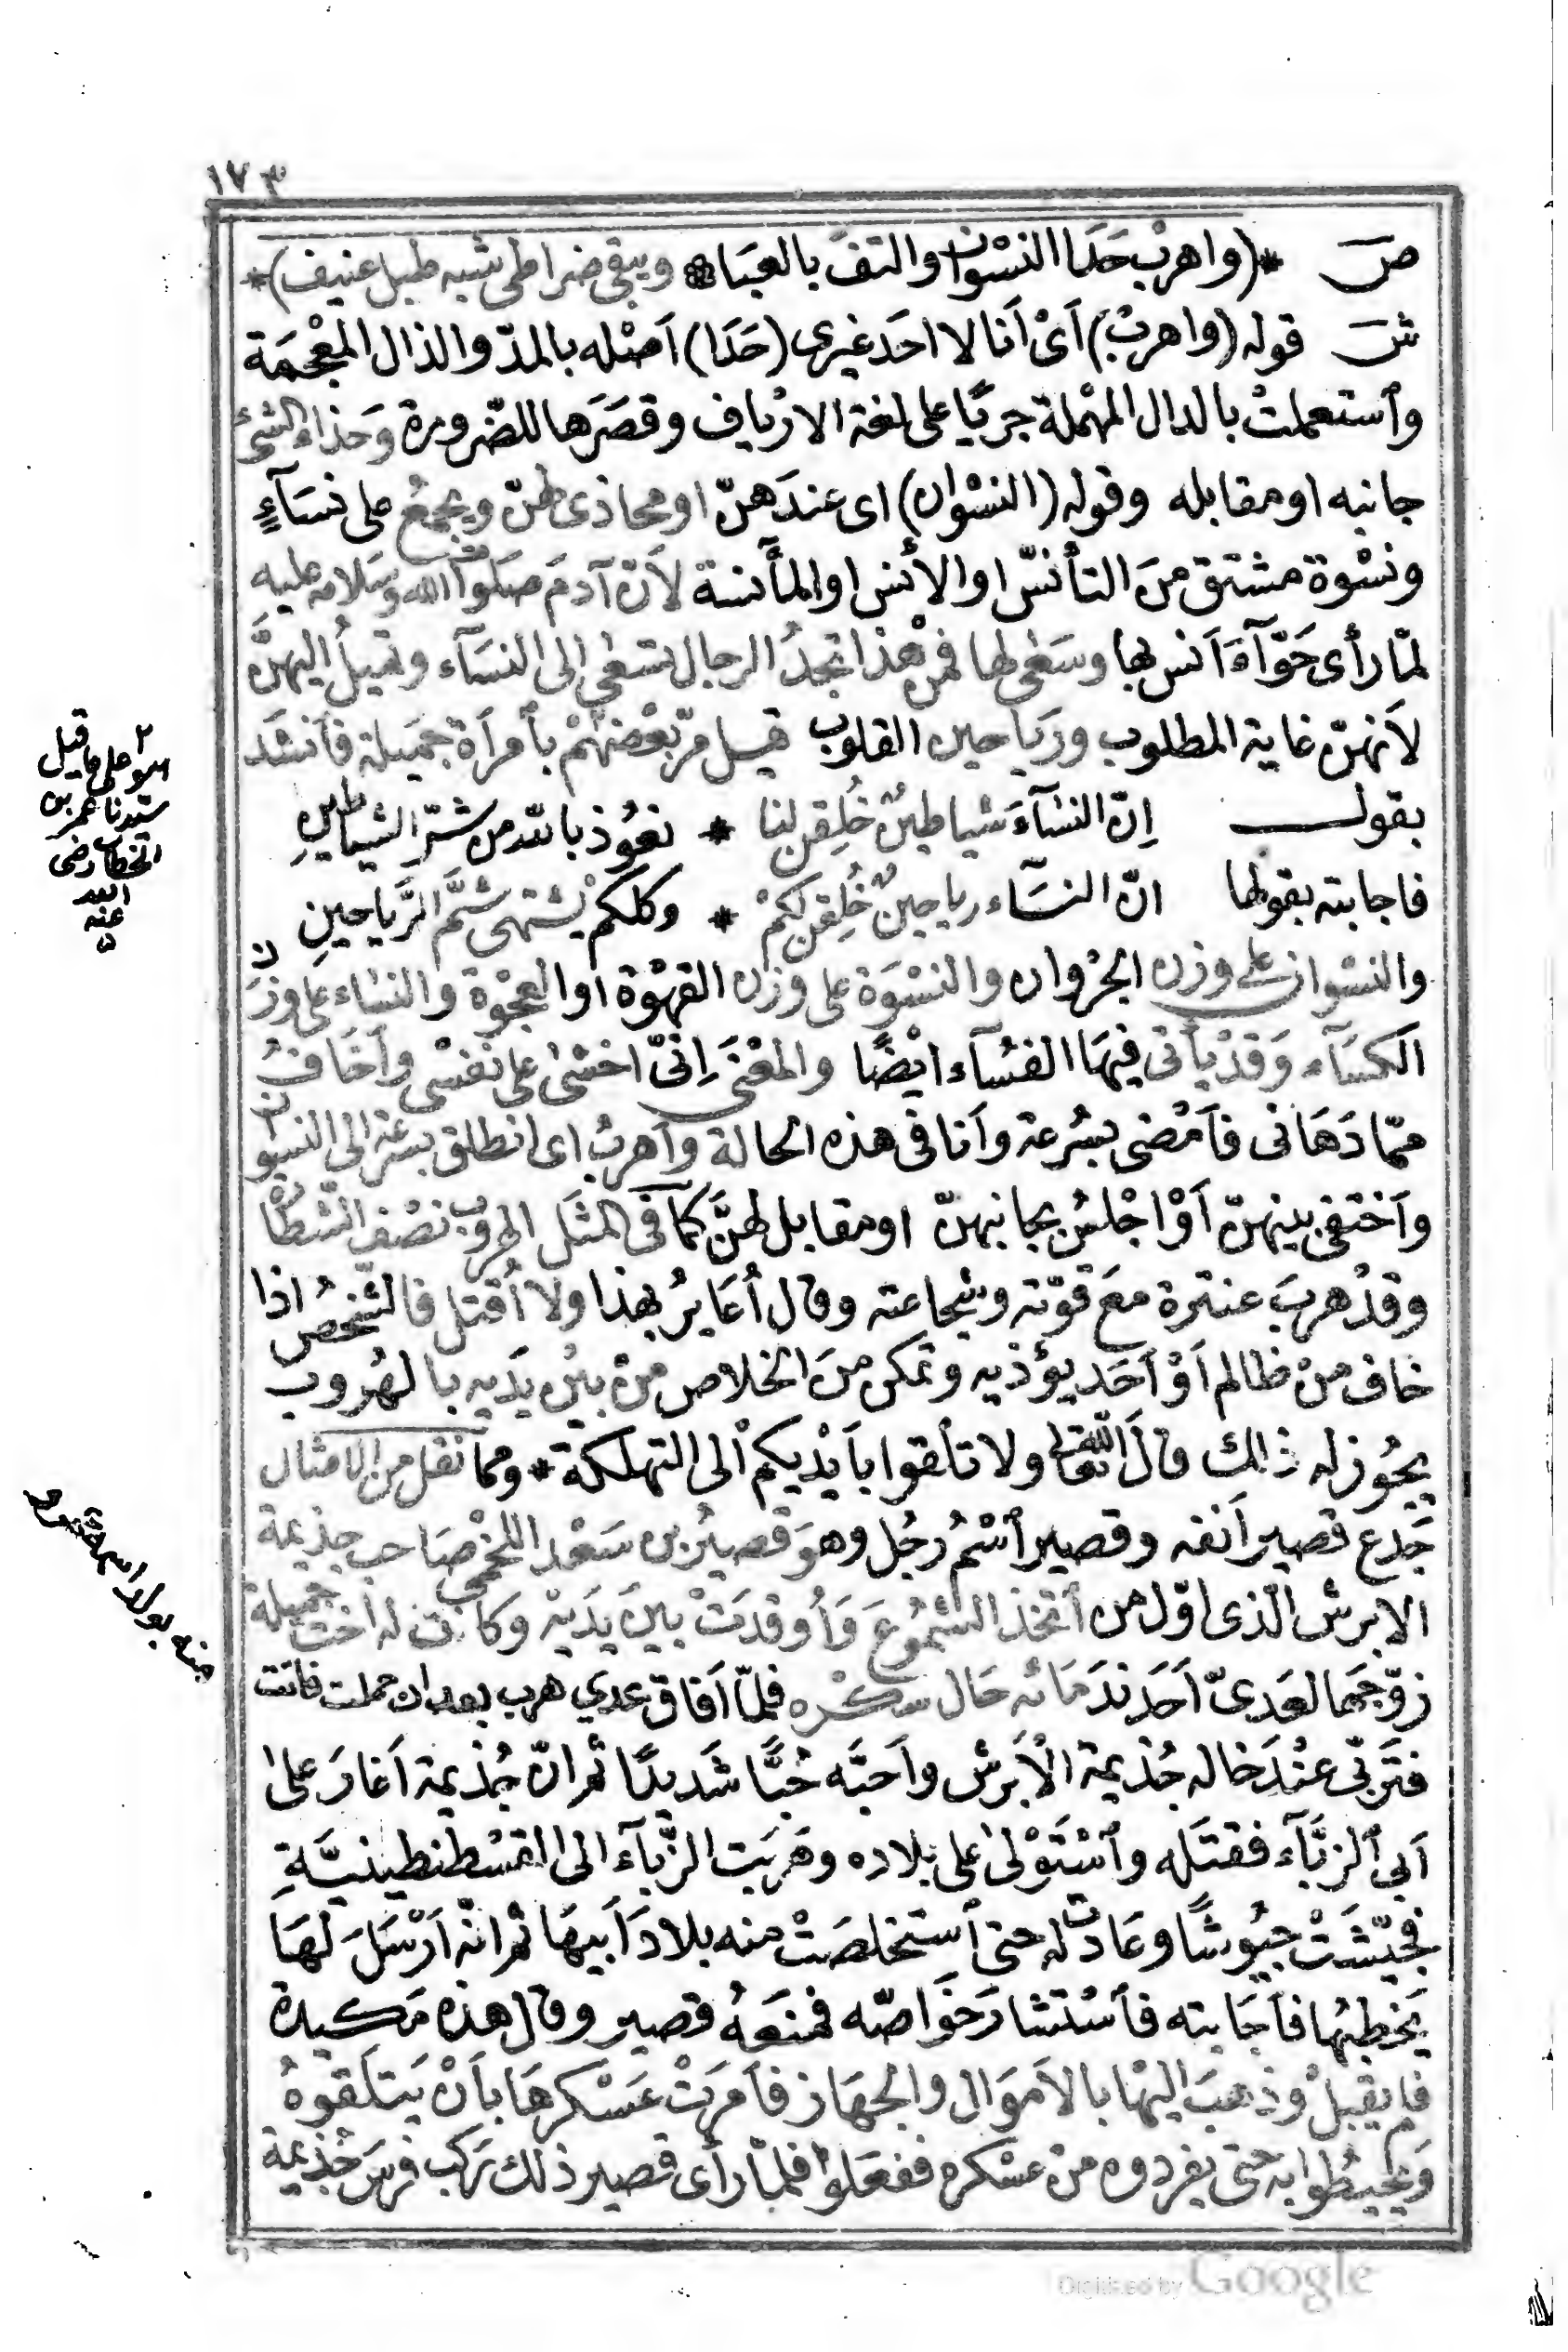 ١٧٣
ص * (واهرب حَدَا النسْوان والتفّ بالعبَا * ويبقى ضراطى شبه طبل عنيف) *
ش قوله (واهربْ) اَىْ اَنا لا احَد غيرى (حَدَا) اَصْله بالمدّ والذال المعْجمَة
وٱستعملتْ بالدال المهْملة جريًا على لغة الارْياف وقصَرَها للضّرورة وَحذاء الشئ
جانبه او مقابله وقوله (النسْوان) اى عندَهنّ او محاذى لهنّ ويجمعُ على نسَآءٍ
ونسْوة مشتق منَ التأنسّ او الأنس او المأنسة لأنّ آدمَ صلَوات الله وسَلامه عليه
لمّا رأى حَوّآءَ اَنس بها وسَعٰى لها فمنْ هٰذا تجدُ الرجال تسْعٰى الى النسَآء وتميلُ اليهنَّ
لاَنهنّ غاية المطلوب ورَياحين القلوب قيـل مرّ بعْضهُمْ بٱمرَأة جَميلة فاَنشَدَ
بقولـــ إنّ النسَآءَ شياطينٌ خُلِقن لنا * نعُوذ باللّه من شرّ الشياطينِ
فاجابته بقولها انّ النسَآء رياحينٌ خُلِقن لكمْ * وكلكمْ يشتهى شمَّ الرَّياحينِ
والنسْوان على وزن الجرْوان والنسْوَة على وزن القهْوَة او العجْوَة والنساء على وَزن
الكسَآء وَقدْ يأتى فيهَا الفسُآء ايْضًا والمعْنَى اِنىّ اخشٰى على نفسْى وأخَافُ
ممّا دَهَانى فاَمْضى بسُرعة واَنا فى هذه الحالة وَاَهربُ اى انطلق بسرعة الى النسوان
واَختفى بينهنّ اَوْ اجْلسُ بجانبهنّ او مقابل لهنَّ كما فى المثَل الهروب نصْف الشّطارة
وقدْ هربَ عنترة معَ قوّته وشجاعته وقال اُعَايرُ بهذا ولا اُقتل فالشّخصُ اذا
خاف منْ ظالم اَوْ اَحَد يؤذيه وتمكن منَ الخلاص منْ بيْن يدَيه بالهُروب
يجُوز له ذلك قالَ اللّه تعالى ولا تلْقوا باَيْديكمْ الى التهلكة * ومما نقل من الامثال
جَدعَ قصير اَنفه وقصير ٱسْمُ رَجُل وهوَ قصيْر بن سَعْد اللخْمى صَاحب جذيمة
الابرش الّذى اوّل من ٱتخذ الشّموُعَ وَاُوقدَتْ بينَ يَدَيْه وكانت له اخت جميلة
زوّجهَا لعَدىّ اَحَد ندَمَائه حَال سكْره فلمّا اَفاق عدي هرب بعد ان حملت فاتت
فترَبّى عنْدَ خاله جُذيمة الْاَبرَش واَحبَّه حُبًّا شَديدًا ثم انّ جُذيمة اَغارَ على
اَبى ٱلزبَّآء فقتَله وٱسْتَوْلىٰ على بلاده وهَربَت الزّبآء الى القسْطنطينيَّةِ
فجيّشَتْ جيُوشًا وعَادت له حتى ٱستخلصَتْ منه بلادَ اَبيهَا ثم انّه اَرْسَلَ لهَا
يَخطبُها فاَجَابته فٱسْتشارَ خَواصّه فمنعَهُ قصير وقال هذه مَكيدة
فلم يقبلْ وذهَبَ اليْها بالاَموَال والجهَاز فاَمرَتْ عَسْكرهَا باَنْ يَتلقوهُ
وَيحيطُوا به حتى يفردوه منْ عسْكره ففعَلوْا فلمّا رأى قصير ذلك رَكب فرسَ جُذيمة
٢
هو على ما قيل
سيّدنا عمر بن
الخطاب رضى
الله
عنه